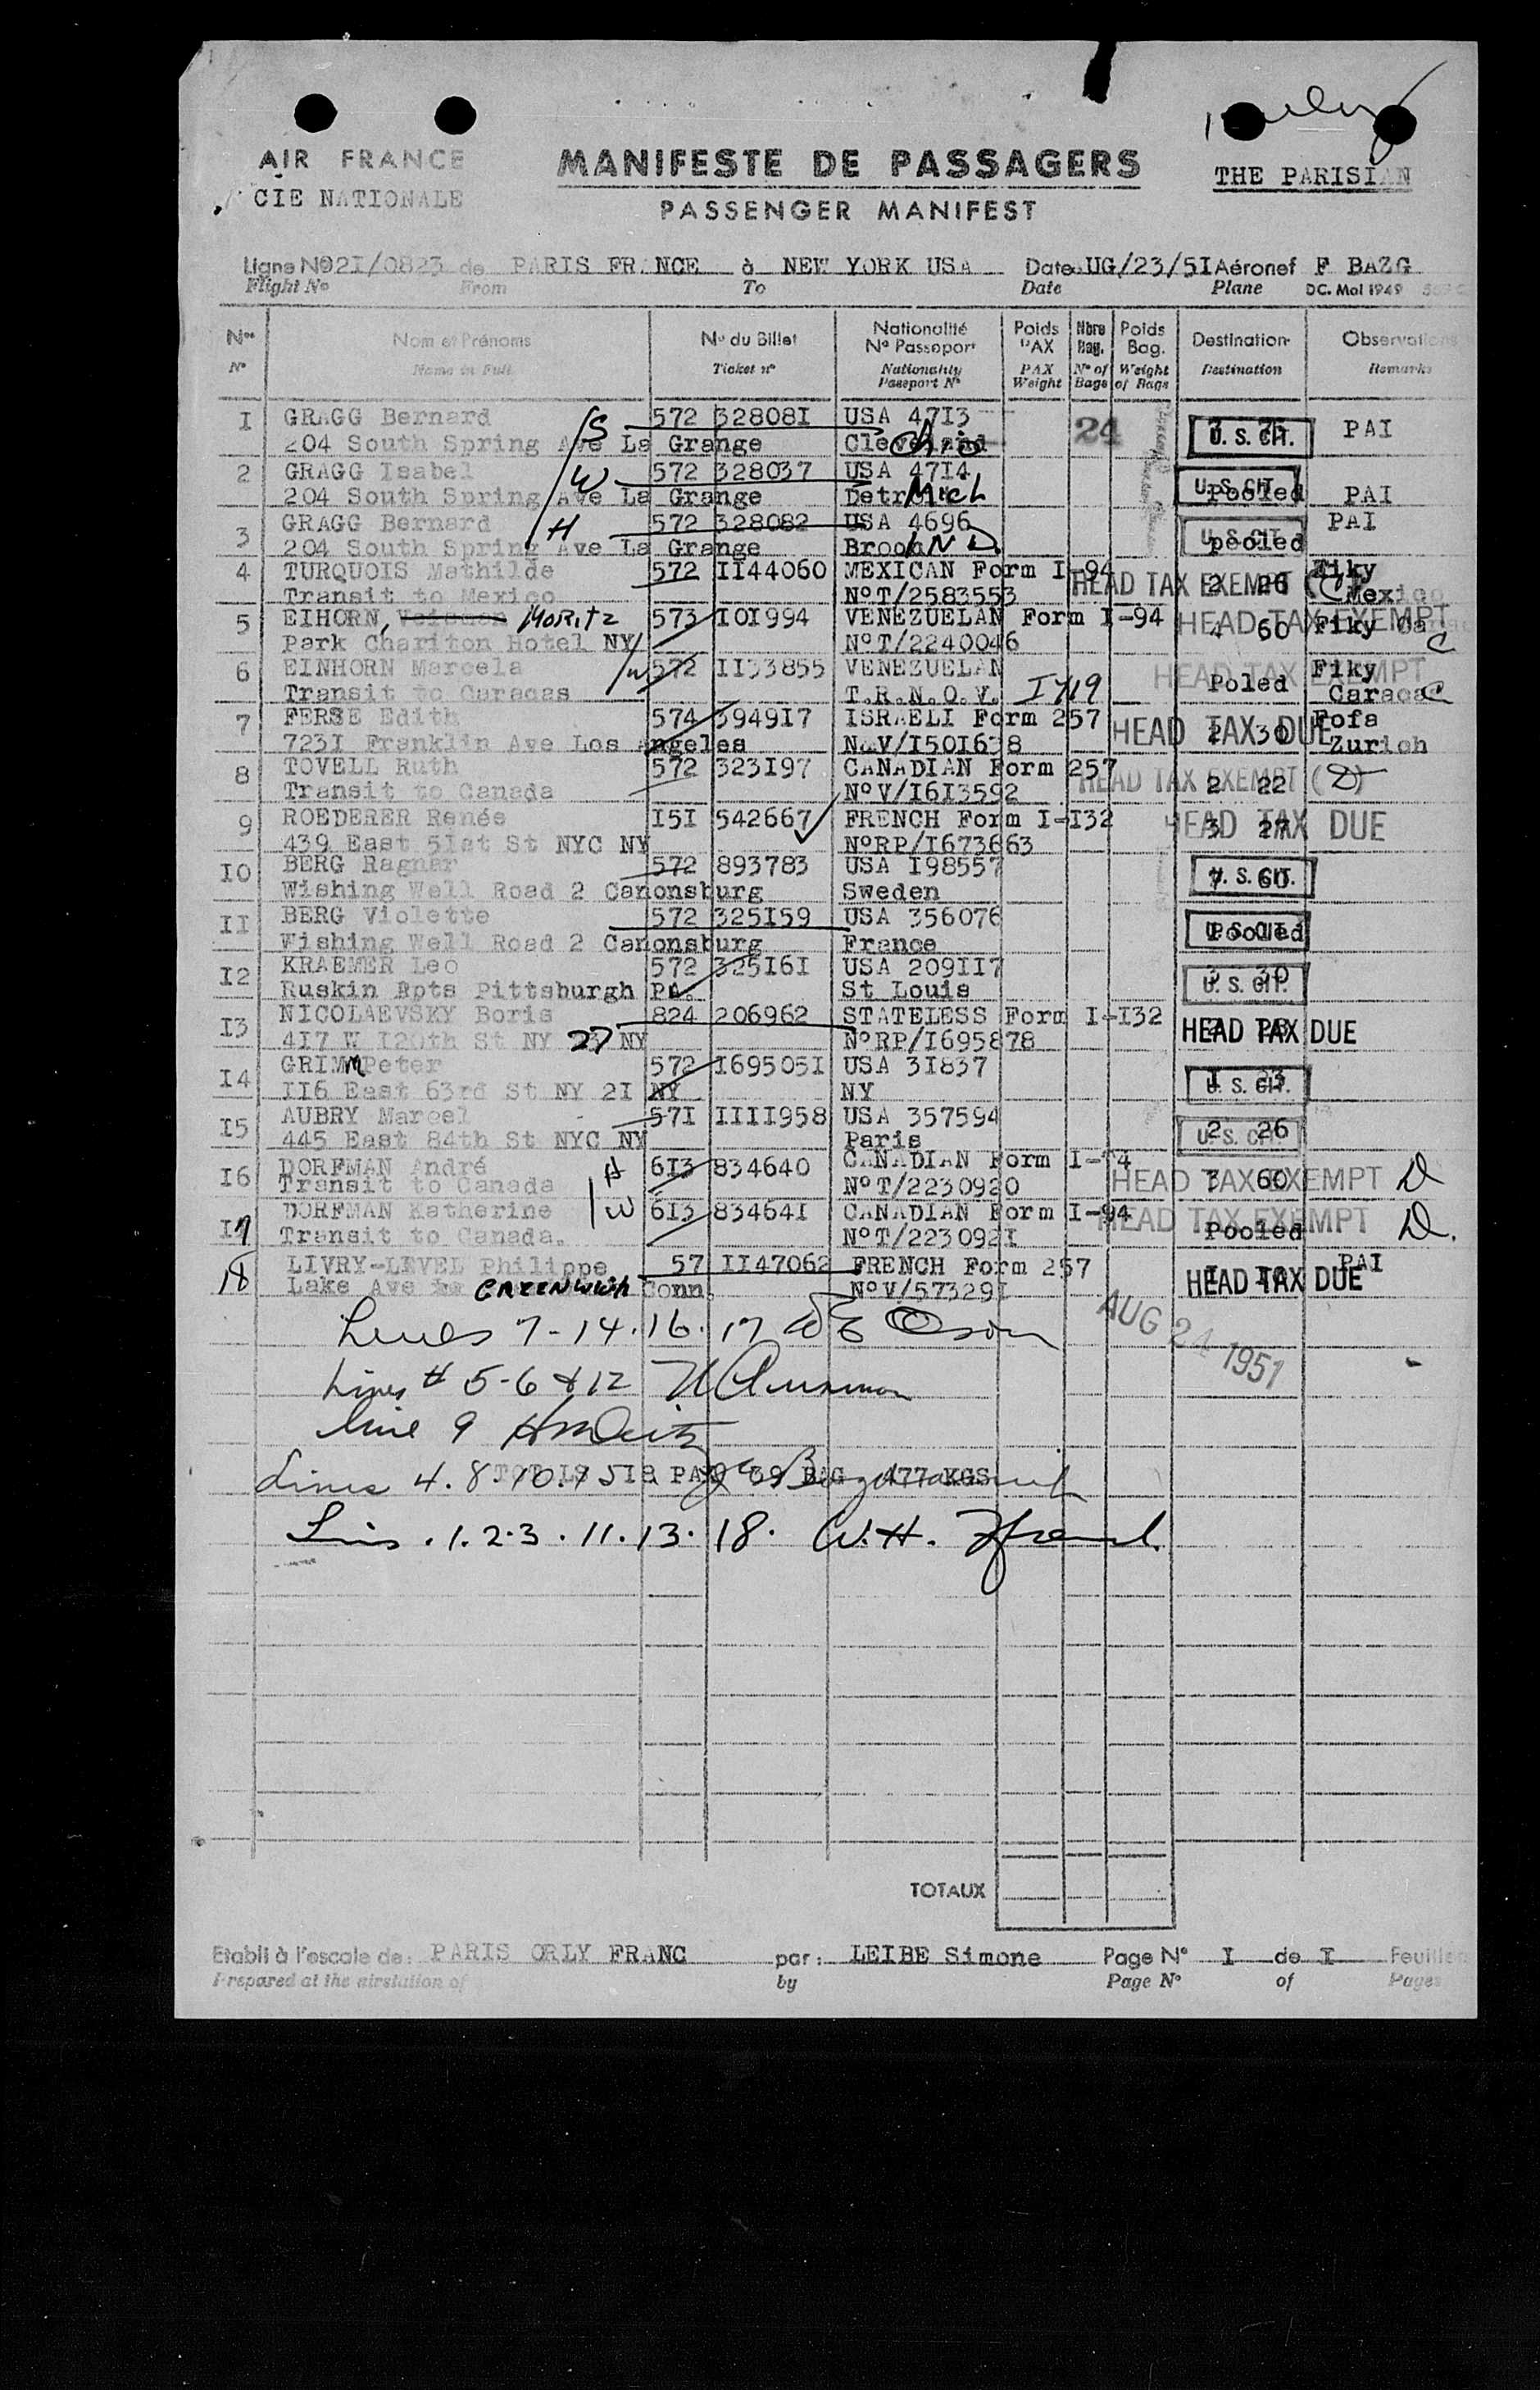 AIR FRANCE
CIE NATIONALE
MANIFESTE DE PASSAGERS
PASSENGER MANIFEST
THE PARISIAN
Ligne Nº 021/0823 de PARIS FRANCE à NEW YORK USA Date UG/23/5I Aéronef F BAZG
Flight Nº From To Date Plane DC. Mai 1949
Nos Nom et Prénoms Nº du Billet Nationalité Nº Passeport Poids PAX Nbre Bag. Poids Bag. Destination Observations
Nº Name in Full Ticket nº Nationality Passport Nº PAX Weight Nº of Bags Weight of Bags Destination Remarks
I GRAGG Bernard /S 572 32808I USA 47I3 24 U. S. CIT. PAI
204 South Spring Ave La Grange Cleveland Ohio
2 GRAGG Isabel /W 572 328037 USA 47I4 U. S. CIT. Pooled PAI
204 South Spring Ave La Grange Detroit Mich
3 GRAGG Bernard H 572 328082 USA 4696 U. S. CIT. pooled PAI
204 South Spring Ave La Grange Brook IND
4 TURQUOIS Mathilde 572 II44060 MEXICAN Form I-94 HEAD TAX EXEMPT (C) 2 26 Fiky
Transit to Mexico NºT/2583553 Mexico
5 EIHORN, MORITZ 573 IOI994 VENEZUELAN Form I-94 HEAD TAX EXEMPT 4 60 Fiky
Park Chariton Hotel NY NºT/2240046 C
6 EINHORN Marcela /W 572 II33855 VENEZUELAN HEAD TAX EXEMPT Poled Fiky
Transit to Caracas T.R.N.O.V. I 719 Caracas C
7 FERSE Edith 574 3949I7 ISRAELI Form 257 HEAD TAX DUE 2 30 Fofa
723I Franklin Ave Los Angeles NºV/I50I638 Zurich
8 TOVELL Ruth 572 323I97 CANADIAN Form 257 HEAD TAX EXEMPT (D) 2 22
Transit to Canada NºV/I6I3592
9 ROEDERER Renée I5I 542667 FRENCH Form I-I32 HEAD TAX DUE 3 27
439 East 5Ist St NYC NY NºRP/I673663
IO BERG Ragnar 572 893783 USA I98557 U. S. CIT. 7 60
Wishing Well Road 2 Canonsburg Sweden
II BERG Violette 572 325I59 USA 356076 U. S. CIT. Pooled
Wishing Well Road 2 Canonsburg France
I2 KRAEMER Leo 572 325I6I USA 209II7 U. S. CIT. 3 30
Ruskin Apts Pittsburgh PA. St Louis
I3 NICOLAEVSKY Boris 824 206962 STATELESS Form I-I32 HEAD TAX DUE
4I7 W I20th St NY 27 NY NºRP/I695878
I4 GRIMM Peter 572 I69505I USA 3I837 U. S. CIT.
II6 East 63rd St NY 2I NY NY
I5 AUBRY Marcel 57I IIII958 USA 357594 U. S. CIT. 2 26
445 East 84th St NYC NY Paris
I6 DORFMAN André H 6I3 834640 CANADIAN Form I-94 HEAD TAX EXEMPT D 3 60
Transit to Canada NºT/2230920
I7 DORFMAN Katherine W 6I3 83464I CANADIAN Form I-94 HEAD TAX EXEMPT D. Pooled
Transit to Canada. NºT/223092I
18 LIVRY-LEVEL Philippe 57 II47062 FRENCH Form 257 HEAD TAX DUE PAI
Lake Ave GREENWICH Conn. NºV/57329I
AUG 24 1951
Lines 7-14.16.17
Lines # 5-6 & 12
Line 9
Lines 4. 8 10. 15
TOTALS I8 PAX 39 BAG 477 KGS
Lines . 1. 2. 3 . 11. 13. 18. W.H.
TOTAUX
Etabli à l'escale de: PARIS ORLY FRANC par: LEIBE Simone Page Nº I de I Feuilles
Prepared at the airstation of by Page Nº of Pages